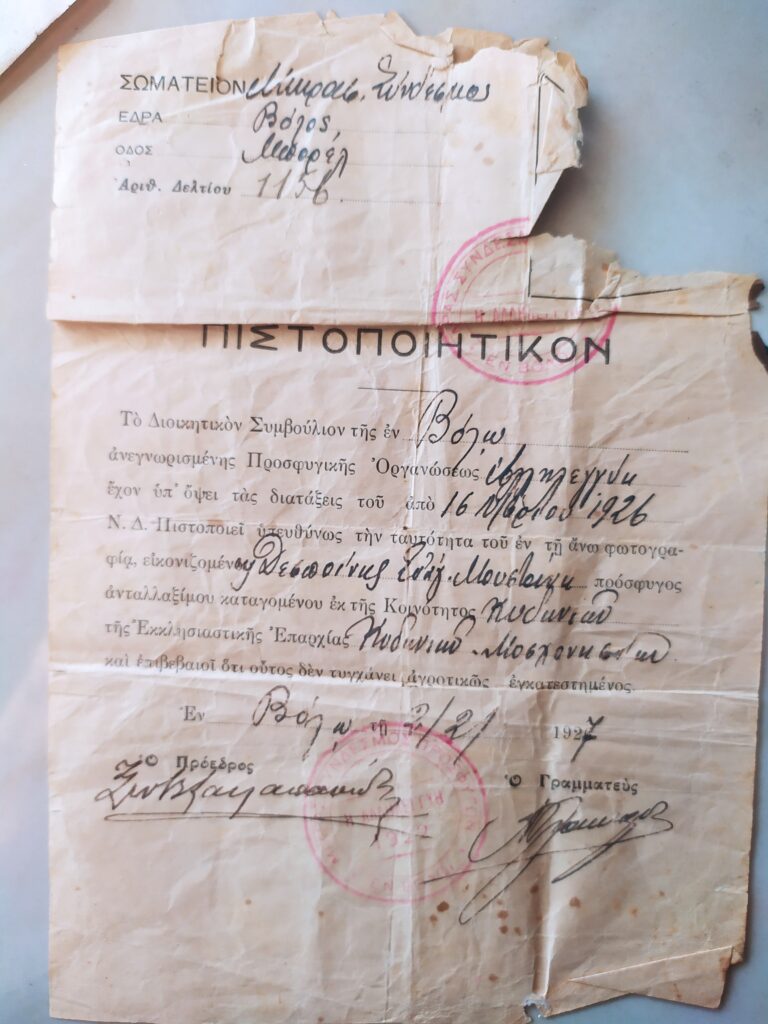 ΣΩΜΑΤΕΙΟΝ Μικρασ. Σύνδεσμος
ΕΔΡΑ Βόλος
ΟΔΟΣ Μπορέλ
Ἀριθ. Δελτίου 1156
ΠΙΣΤΟΠΟΙΗΤΙΚΟΝ
Τὸ Διοικητικὸν Συμβούλιον τῆς ἐν Βόλῳ
ἀνεγνωρισμένης Προσφυγικῆς Ὀργανώσεως
ἔχον ὑπ' ὄψει τὰς διατάξεις τοῦ ἀπὸ 16 Μαρτίου 1926
Ν. Δ. Πιστοποιεῖ ὑπευθύνως τὴν ταὐτότητα τοῦ ἐν τῇ ἄνω φωτογρα-
φίᾳ, εἰκονιζομένου Δεσποίνης πρόσφυγος
ἀνταλλαξίμου καταγομένου ἐκ τῆς Κοινότητος Κυδωνιῶν
τῆς Ἐκκλησιαστικῆς Ἐπαρχίας Κυδωνιῶν
καὶ ἐπιβεβαιοῖ ὅτι οὗτος δὲν τυγχάνει ἀγροτικῶς ἐγκατεστημένος.
Ἐν Βόλῳ τῇ 2/2/ 1927
Ὁ Πρόεδρος
Ὁ Γραμματεὺς